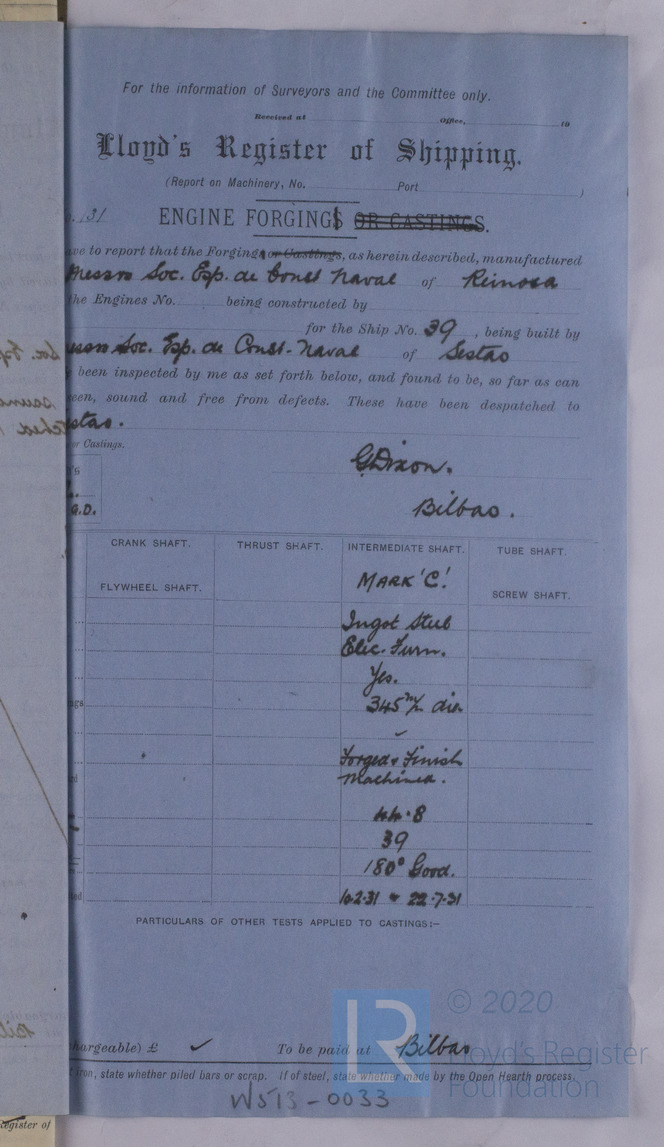 For the information of Surveyors and the Committee only.
Received at Office, 19
Lloyd's Register of Shipping.
(Report on Machinery, No. Port )
o. 31 ENGINE FORGINGS OR CASTINGS.
ave to report that the Forgings or Castings, as herein described, manufactured
Messrs Soc. Esp. de Const Naval of Reinosa
the Engines No. being constructed by
for the Ship No. 39, being built by
Soc. Esp. de Const. Naval of Sestao
been inspected by me as set forth below, and found to be, so far as can
een, sound and free from defects. These have been despatched to
stao.
or Castings.
G Dixon.
G.D.
Bilbao.
CRANK SHAFT. THRUST SHAFT. INTERMEDIATE SHAFT. TUBE SHAFT.
FLYWHEEL SHAFT. MARK 'C'. SCREW SHAFT.
Ingot Steel
Elec. Furn.
Yes.
345 m/m dia.
Forged & Finish
Machined.
44.8
39
180° Good.
10.2.31 & 22.7.31
PARTICULARS OF OTHER TESTS APPLIED TO CASTINGS:—
hargeable) £ ✓ To be paid at Bilbao
iron, state whether piled bars or scrap. If of steel, state whether made by the Open Hearth process.
W513-0033
egister of
LR
© 2020
Lloyd's Register
Foundation